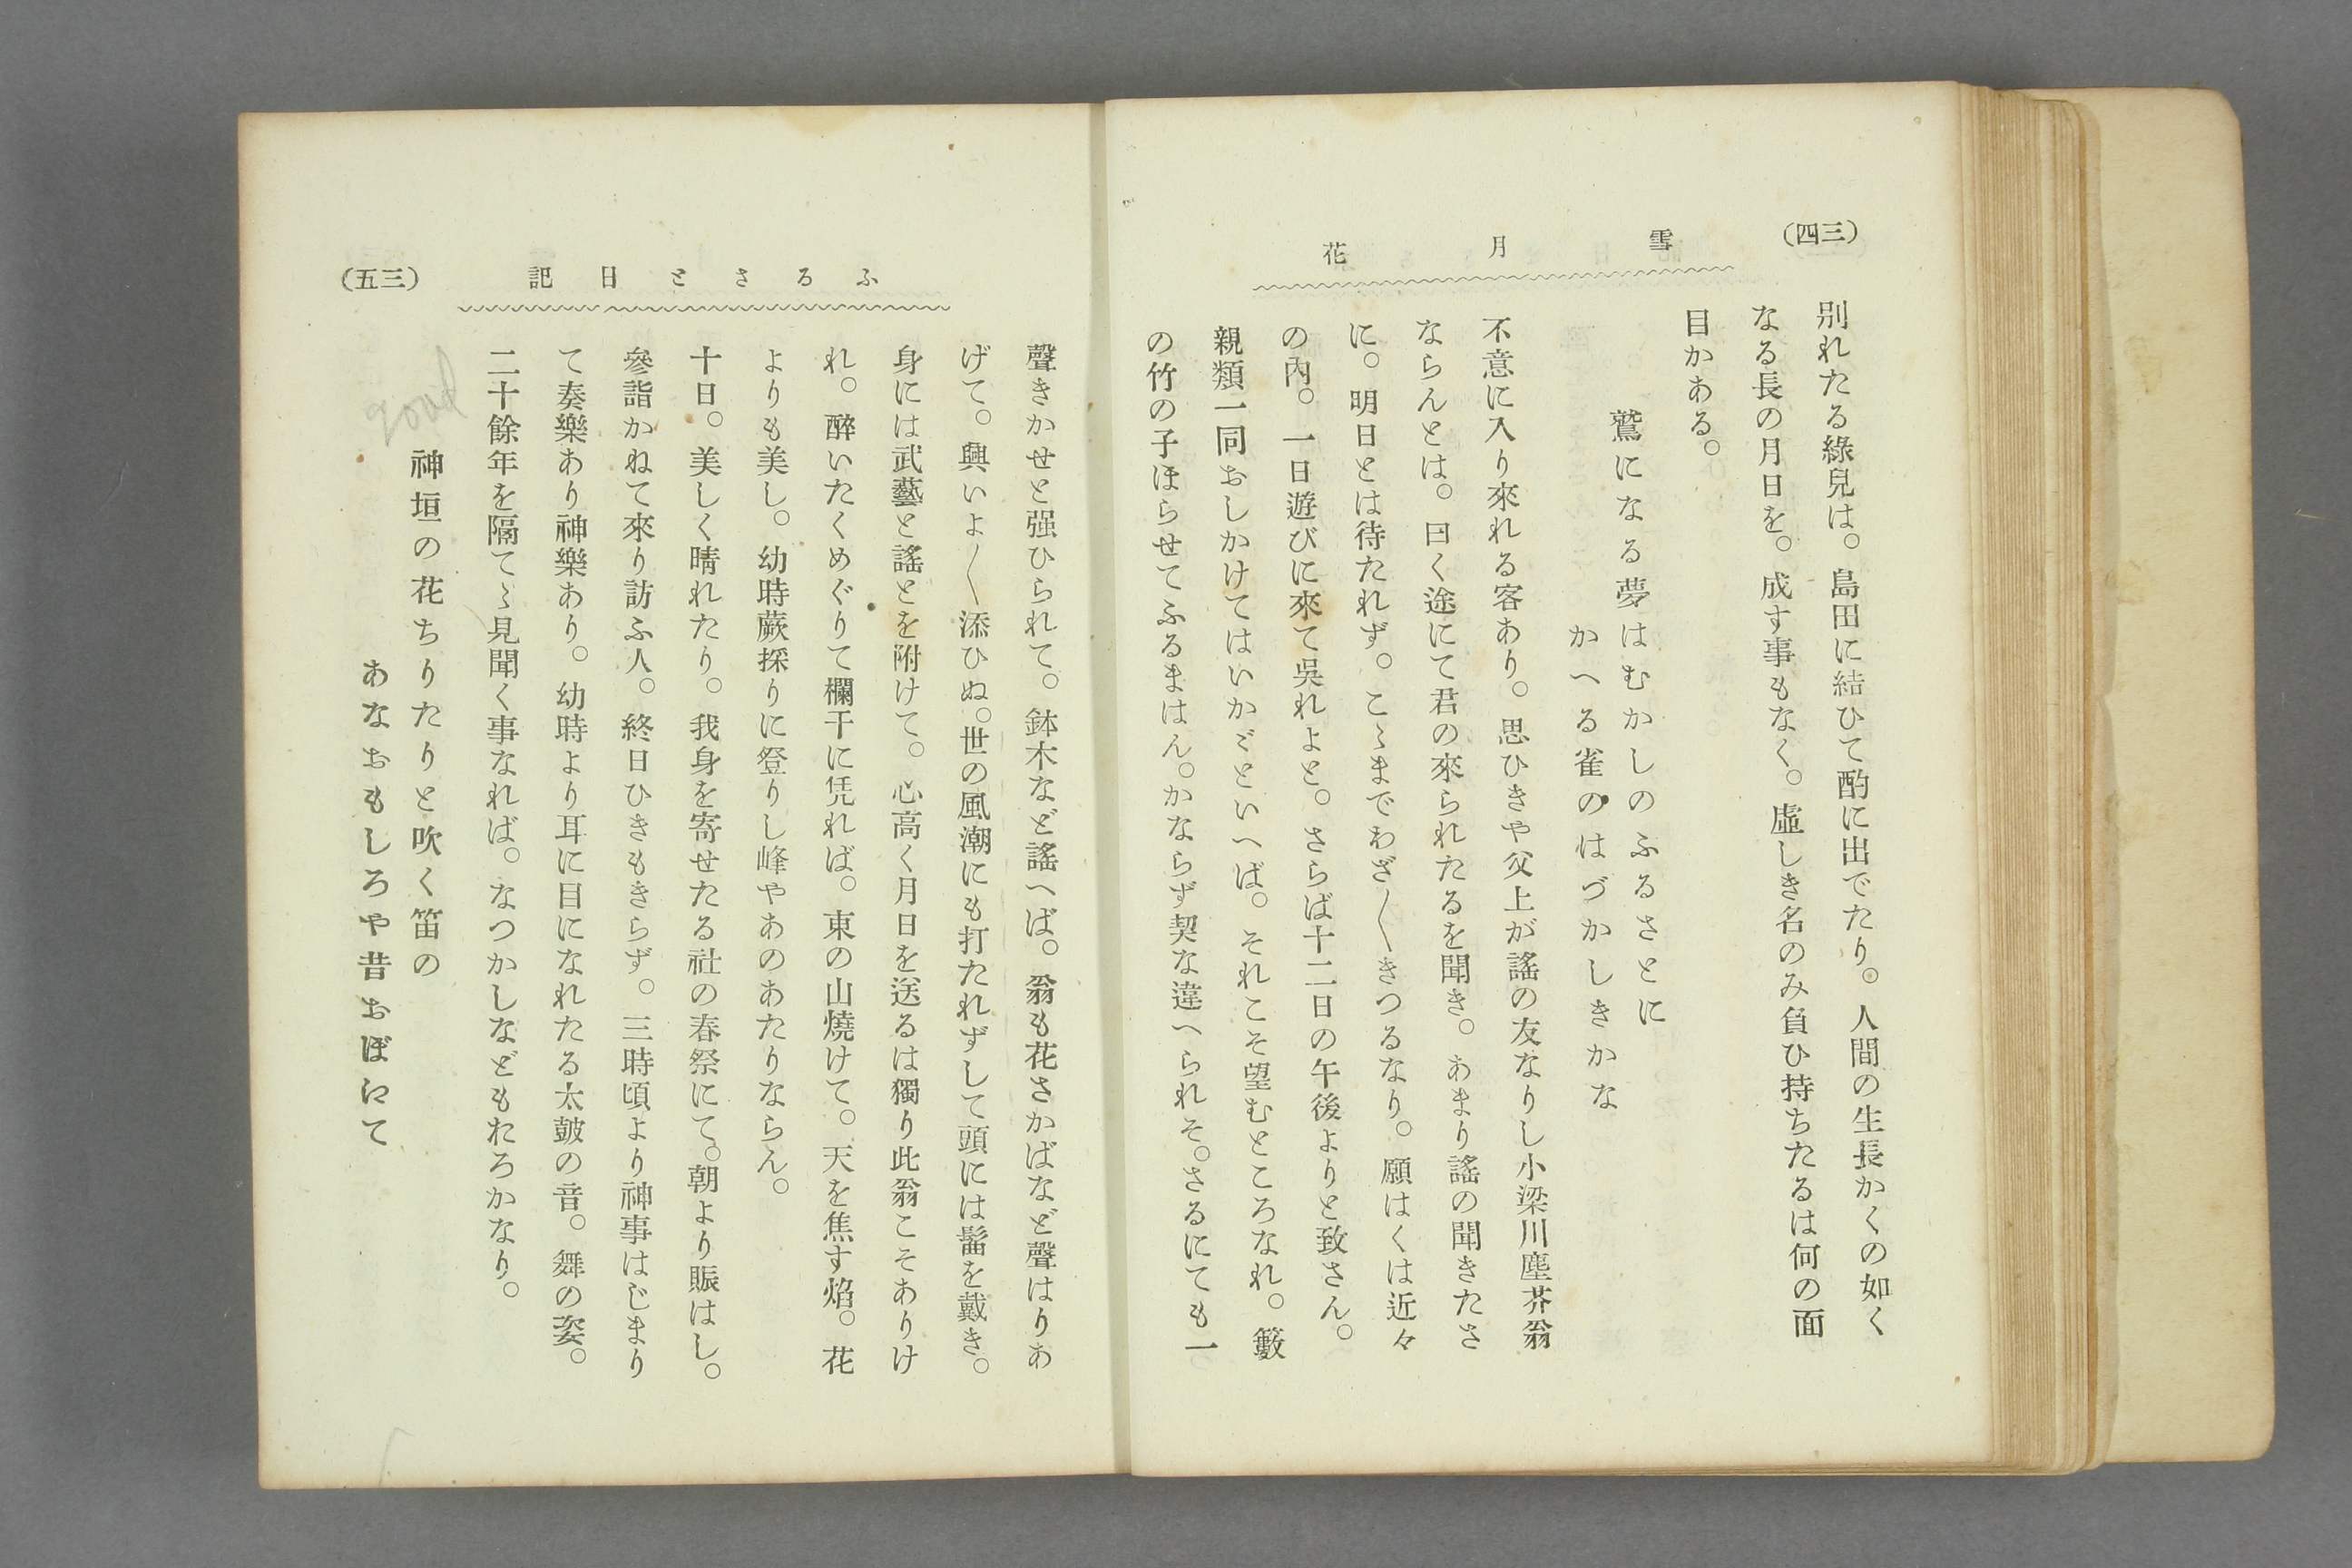 (三四)
雪月花
別れたる綠兒は。島田に結ひて酌に出でたり。人間の生長かくの如く
なる長の月日を。成す事もなく。虛しき名のみ負ひ持ちたるは何の面
目かある。
鷲になる夢はむかしのふるさとに
かへる雀のはづかしきかな
不意に入り來れる客あり。思ひきや父上が謠の友なりし小梁川塵芥翁
ならんとは。曰く途にて君の來られたるを聞き。あまり謠の聞きたさ
に。明日とは待たれず。こゝまでわざ〳〵きつるなり。願はくは近々
の內。一日遊びに來て吳れよと。さらば十二日の午後よりと致さん。
親類一同おしかけてはいかゞといへば。それこそ望むところなれ。籔
の竹の子ほらせてふるまはん。かならず契な違へられそ。さるにても一
ふるさと日記
(三五)
聲きかせと强ひられて。鉢木など謠へば。翁も花さかばなど聲はりあ
げて。興いよ〳〵添ひぬ。世の風潮にも打たれずして頭には髷を戴き。
身には武藝と謠とを附けて。心高く月日を送るは獨り此翁こそありけ
れ。醉いたくめぐりて欄干に凭れば。東の山燒けて。天を焦す焰。花
よりも美し。幼時蕨採りに登りし峰やあのあたりならん。
十日。美しく晴れたり。我身を寄せたる社の春祭にて。朝より賑はし。
參詣かねて來り訪ふ人。終日ひきもきらず。三時頃より神事はじまり
て奏樂あり神樂あり。幼時より耳に目になれたる太皷の音。舞の姿。
二十餘年を隔てゝ見聞く事なれば。なつかしなどもおろかなり。
good
神垣の花ちりたりと吹く笛の
あなおもしろや昔おぼにて